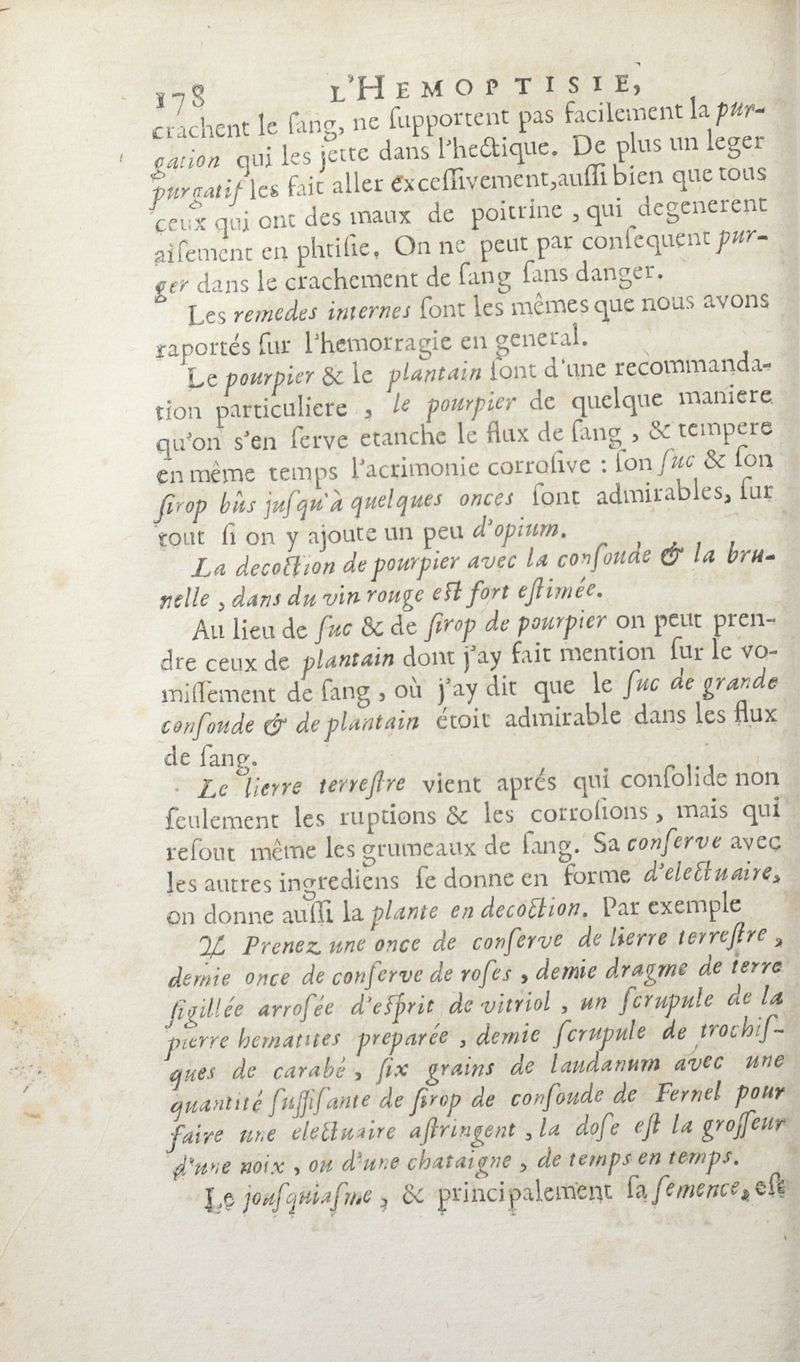 178 L'HEMOPTISIE,
crachent le ſang, ne ſupportent pas facilement la pur-
gation qui les jette dans l'hectique. De plus un leger
purgatif les fait aller exceſſivement, auſſi bien que tous
ceux qui ont des maux de poitrine, qui degenerent
aiſement en phtiſie. On ne peut par conſequent pur-
ger dans le crachement de ſang ſans danger.
Les remedes internes ſont les mêmes que nous avons
raportés ſur l'hemorragie en general.
Le pourpier & le plantain ſont d'une recommanda-
tion particuliere, le pourpier de quelque maniere
qu'on s'en ſerve etanche le flux de ſang, & tempere
en même temps l'acrimonie corroſive : ſon ſuc & ſon
ſirop bûs juſqu'à quelques onces ſont admirables, ſur
tout ſi on y ajoute un peu d'opium.
La decoction de pourpier avec la conſoude & la bru-
nelle, dans du vin rouge eſt fort eſtimée.
Au lieu de ſuc & de ſirop de pourpier on peut pren-
dre ceux de plantain dont j'ay fait mention ſur le vo-
miſſement de ſang, où j'ay dit que le ſuc de grande
conſoude & de plantain étoit admirable dans les flux
de ſang.
Le lierre terreſtre vient aprés qui conſolide non
ſeulement les ruptions & les corroſions, mais qui
reſout même les grumeaux de ſang. Sa conſerve avec
les autres ingrediens ſe donne en forme d'electuaire,
on donne auſſi la plante en decoction. Par exemple
℞ Prenez une once de conſerve de lierre terreſtre,
demie once de conſerve de roſes, demie dragme de terre
ſigillée arroſée d'eſprit de vitriol, un ſcrupule de la
pierre hematites preparée, demie ſcrupule de trochiſ-
ques de carabé, ſix grains de laudanum avec une
quantité ſuffiſante de ſirop de conſoude de Fernel pour
faire une electuaire aſtringent, la doſe eſt la groſſeur
d'une noix, ou d'une chataigne, de temps en temps.
Le jouſquiaſme, & principalement ſa ſemence, eſt